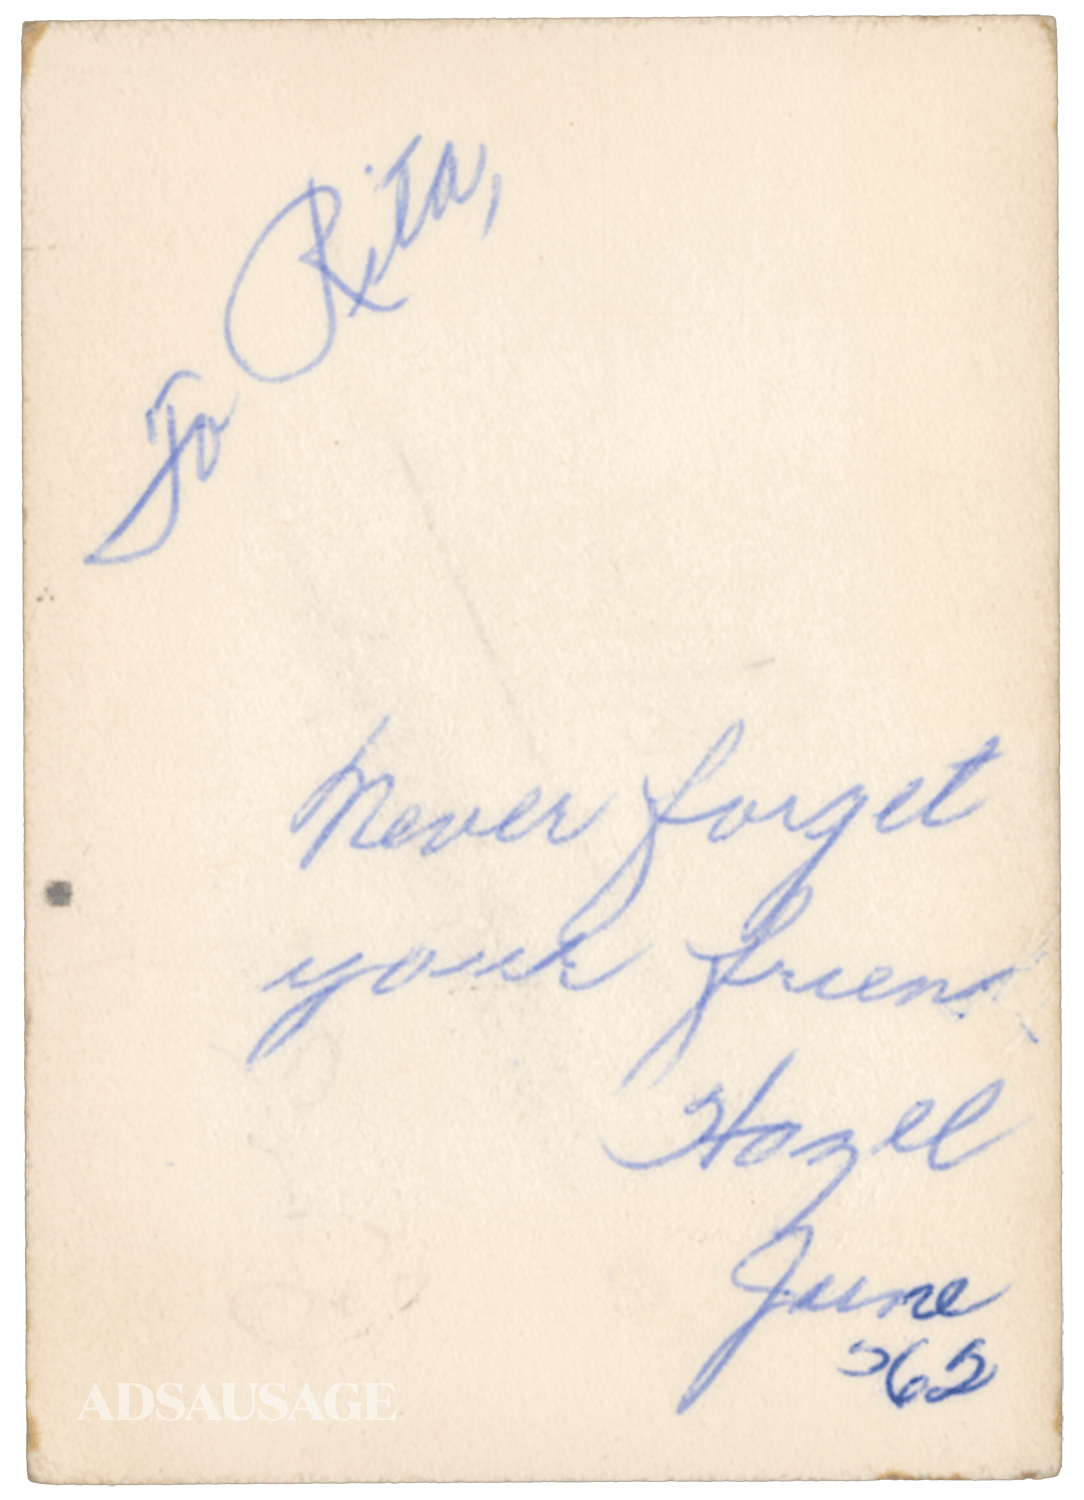 To Rita,
Never forget
your friend
Hazel
June
'62
ADSAUSAGE